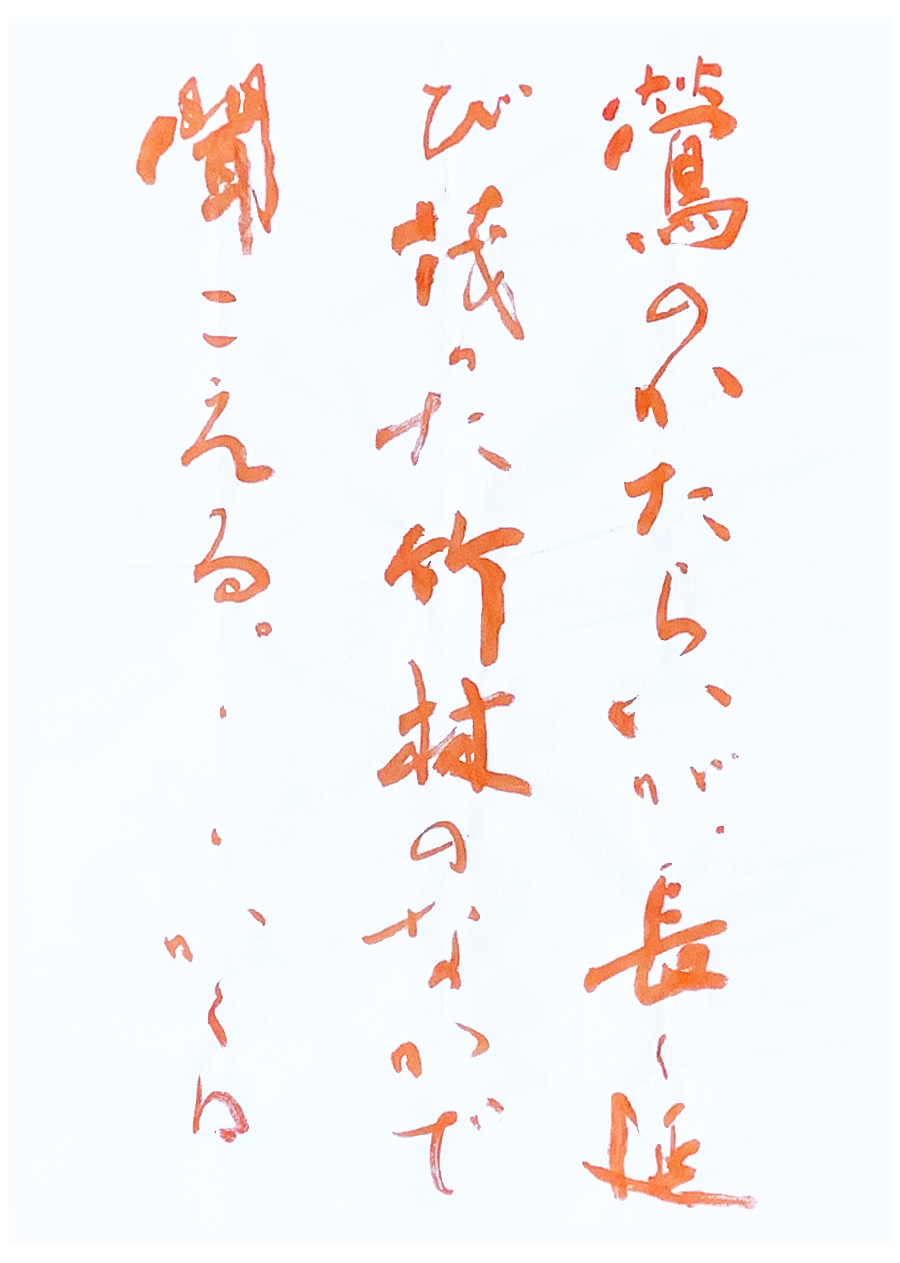 鶯のかたらいが、長く延
び った竹林のなかで
聞こえる。・・かく